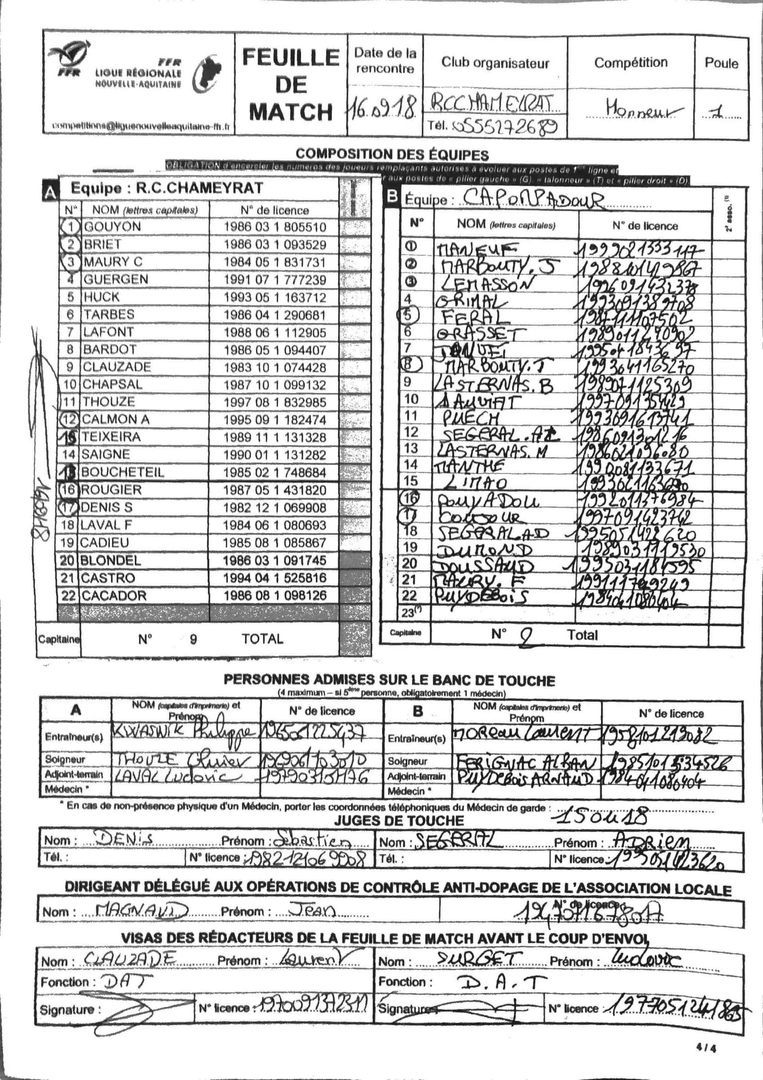 FFR
FFR
LIGUE RÉGIONALE
NOUVELLE-AQUITAINE
competitions@liguenouvelleaquitaine-ffr.fr
FEUILLE DE MATCH
Date de la rencontre
16.09.18
Club organisateur
RCCHAMEYRAT
Tél. 0555272689
Compétition
Honneur
Poule
1
COMPOSITION DES ÉQUIPES
OBLIGATION d'encercler les numéros des joueurs remplaçants autorisés à évoluer aux postes de 1ère ligne et
aux postes de « pilier gauche » (G), « talonneur » (T) et « pilier droit » (D)
A Equipe : R.C.CHAMEYRAT
N° NOM (lettres capitales) N° de licence
1 GOUYON 1986 03 1 805510
2 BRIET 1986 03 1 093529
3 MAURY C 1984 05 1 831731
4 GUERGEN 1991 07 1 777239
5 HUCK 1993 05 1 163712
6 TARBES 1986 04 1 290681
7 LAFONT 1988 06 1 112905
8 BARDOT 1986 05 1 094407
9 CLAUZADE 1983 10 1 074428
10 CHAPSAL 1987 10 1 099132
11 THOUZE 1997 08 1 832985
12 CALMON A 1995 09 1 182474
TEIXEIRA 1989 11 1 131328
14 SAIGNE 1990 01 1 131282
BOUCHETEIL 1985 02 1 748684
16 ROUGIER 1987 05 1 431820
17 DENIS S 1982 12 1 069908
18 LAVAL F 1984 06 1 080693
19 CADIEU 1985 08 1 085867
20 BLONDEL 1986 03 1 091745
21 CASTRO 1994 04 1 525816
22 CACADOR 1986 08 1 098126
Capitaine N° 9 TOTAL
B Équipe : CA POMPADOUR
2e asso. (1)
N° NOM (lettres capitales) N° de licence
1 MANEUF 1999021333117
2 MARBOUTY. J
3 LEMASSON
4 GRIMAL 1993091389708
5 FERAL 1987111107502
6 GRASSET
7
8 MARBOUTY. T 1993041165270
9 LASTERNAS. B 1989071125309
10 DAUVIAT 199709175429
11 PUECH
12 SEGERAL. AL
13 LASTERNAS. M 1986021096080
14 MANTHE 1990081133671
15 LIMAO
16 POUYADOU 1992011276984
17 1997091423742
18 SEGERAL.AD 1995051422620
19 DUMOND 1989031119530
20 DOUSSAUD 1995031184595
21 MAURY. F
22 PUYDEBOIS 1984041080404
23(*)
Capitaine N° 2 Total
PERSONNES ADMISES SUR LE BANC DE TOUCHE
(4 maximum – si 5ème personne, obligatoirement 1 médecin)
A NOM (capitales d'imprimerie) et Prénom N° de licence
Entraîneur(s) KWASNIK Philippe 196501225437
Soigneur THOUZE Olivier 1969061103010
Adjoint-terrain LAVAL Ludovic
Médecin *
B NOM (capitales d'imprimerie) et Prénom N° de licence
Entraîneur(s) MOREAU Laurent 1958101219082
Soigneur FERIGNAC ALBAN
Adjoint-terrain PUYDEBOIS ARNAUD 1984041080404
Médecin *
* En cas de non-présence physique d'un Médecin, porter les coordonnées téléphoniques du Médecin de garde : 15 ou 18
JUGES DE TOUCHE
Nom : DENIS Prénom : Sébastien
Tél. : N° licence : 1982121069908
Nom : SEGERAL Prénom : ADRIEN
Tél. : N° licence :
DIRIGEANT DÉLÉGUÉ AUX OPÉRATIONS DE CONTRÔLE ANTI-DOPAGE DE L'ASSOCIATION LOCALE
Nom : MAGNAUD Prénom : Jean N° de licence
VISAS DES RÉDACTEURS DE LA FEUILLE DE MATCH AVANT LE COUP D'ENVOI
Nom : CLAUZADE Prénom : Laurent
Fonction : DAT
Signature : N° licence :
Nom : SURGET Prénom : Ludovic
Fonction : D.A.T
Signature : N° licence :
4 / 4